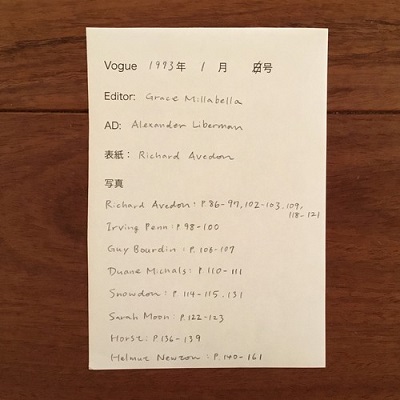 Vogue 1973年 1 月 号
Editor: Grace Millabella
AD: Alexander Liberman
表紙： Richard Avedon
写真
Richard Avedon: P.86-97, 102-103, 109,
118-121
Irving Penn: P.98-100
Guy Bourdin: P.106-107
Duane Michals: P.110-111
Snowdon: P.114-115, 131
Sarah Moon: P.122-123
Horst: P.136-139
Helmut Newton: P.140-161